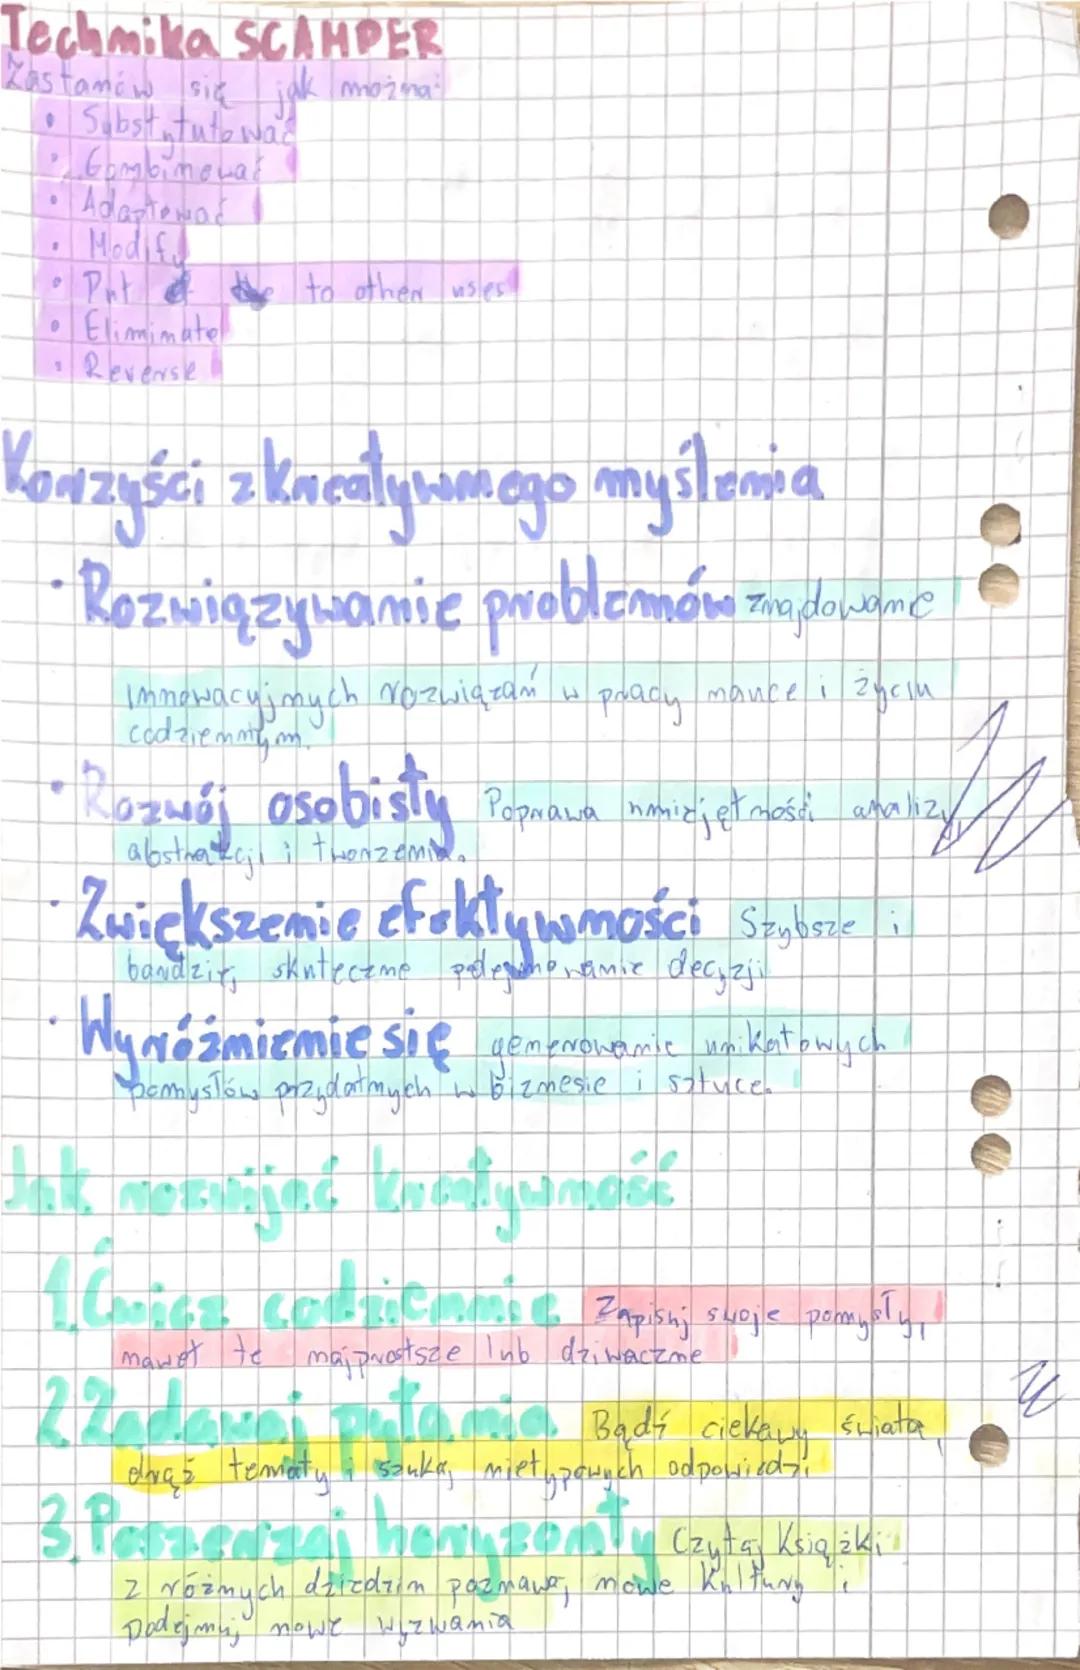 Technika SCAMPER
Zastanów się jak można:
• Substytutować
• Combinować
• Adaptować
• Modify
• Put to other uses
• Eliminate
• Reverse
Korzyści z kreatywnego myślenia
• Rozwiązywanie problemów znajdowanie
innowacyjnych rozwiązań w pracy nauce i życiu
codziennym.
• Rozwój osobisty Poprawa umiejętności analizy,
abstrakcji i tworzenia.
• Zwiększenie efektywności Szybsze i
bardziej skuteczne podejmowanie decyzji
• Wyróżnienie się generowanie unikatowych
pomysłów przydatnych w biznesie i sztuce.
Jak rozwijać kreatywność
1. Ćwicz codziennie Zapisuj swoje pomysły,
nawet te najprostsze lub dziwaczne
2. Zadawaj pytania Bądź ciekawy świata,
drąż tematy i szukaj nietypowych odpowiedzi
3. Poszerzaj horyzonty Czytaj Książki
z różnych dziedzin poznawaj nowe Kultury i
Podejmuj nowe wyzwania